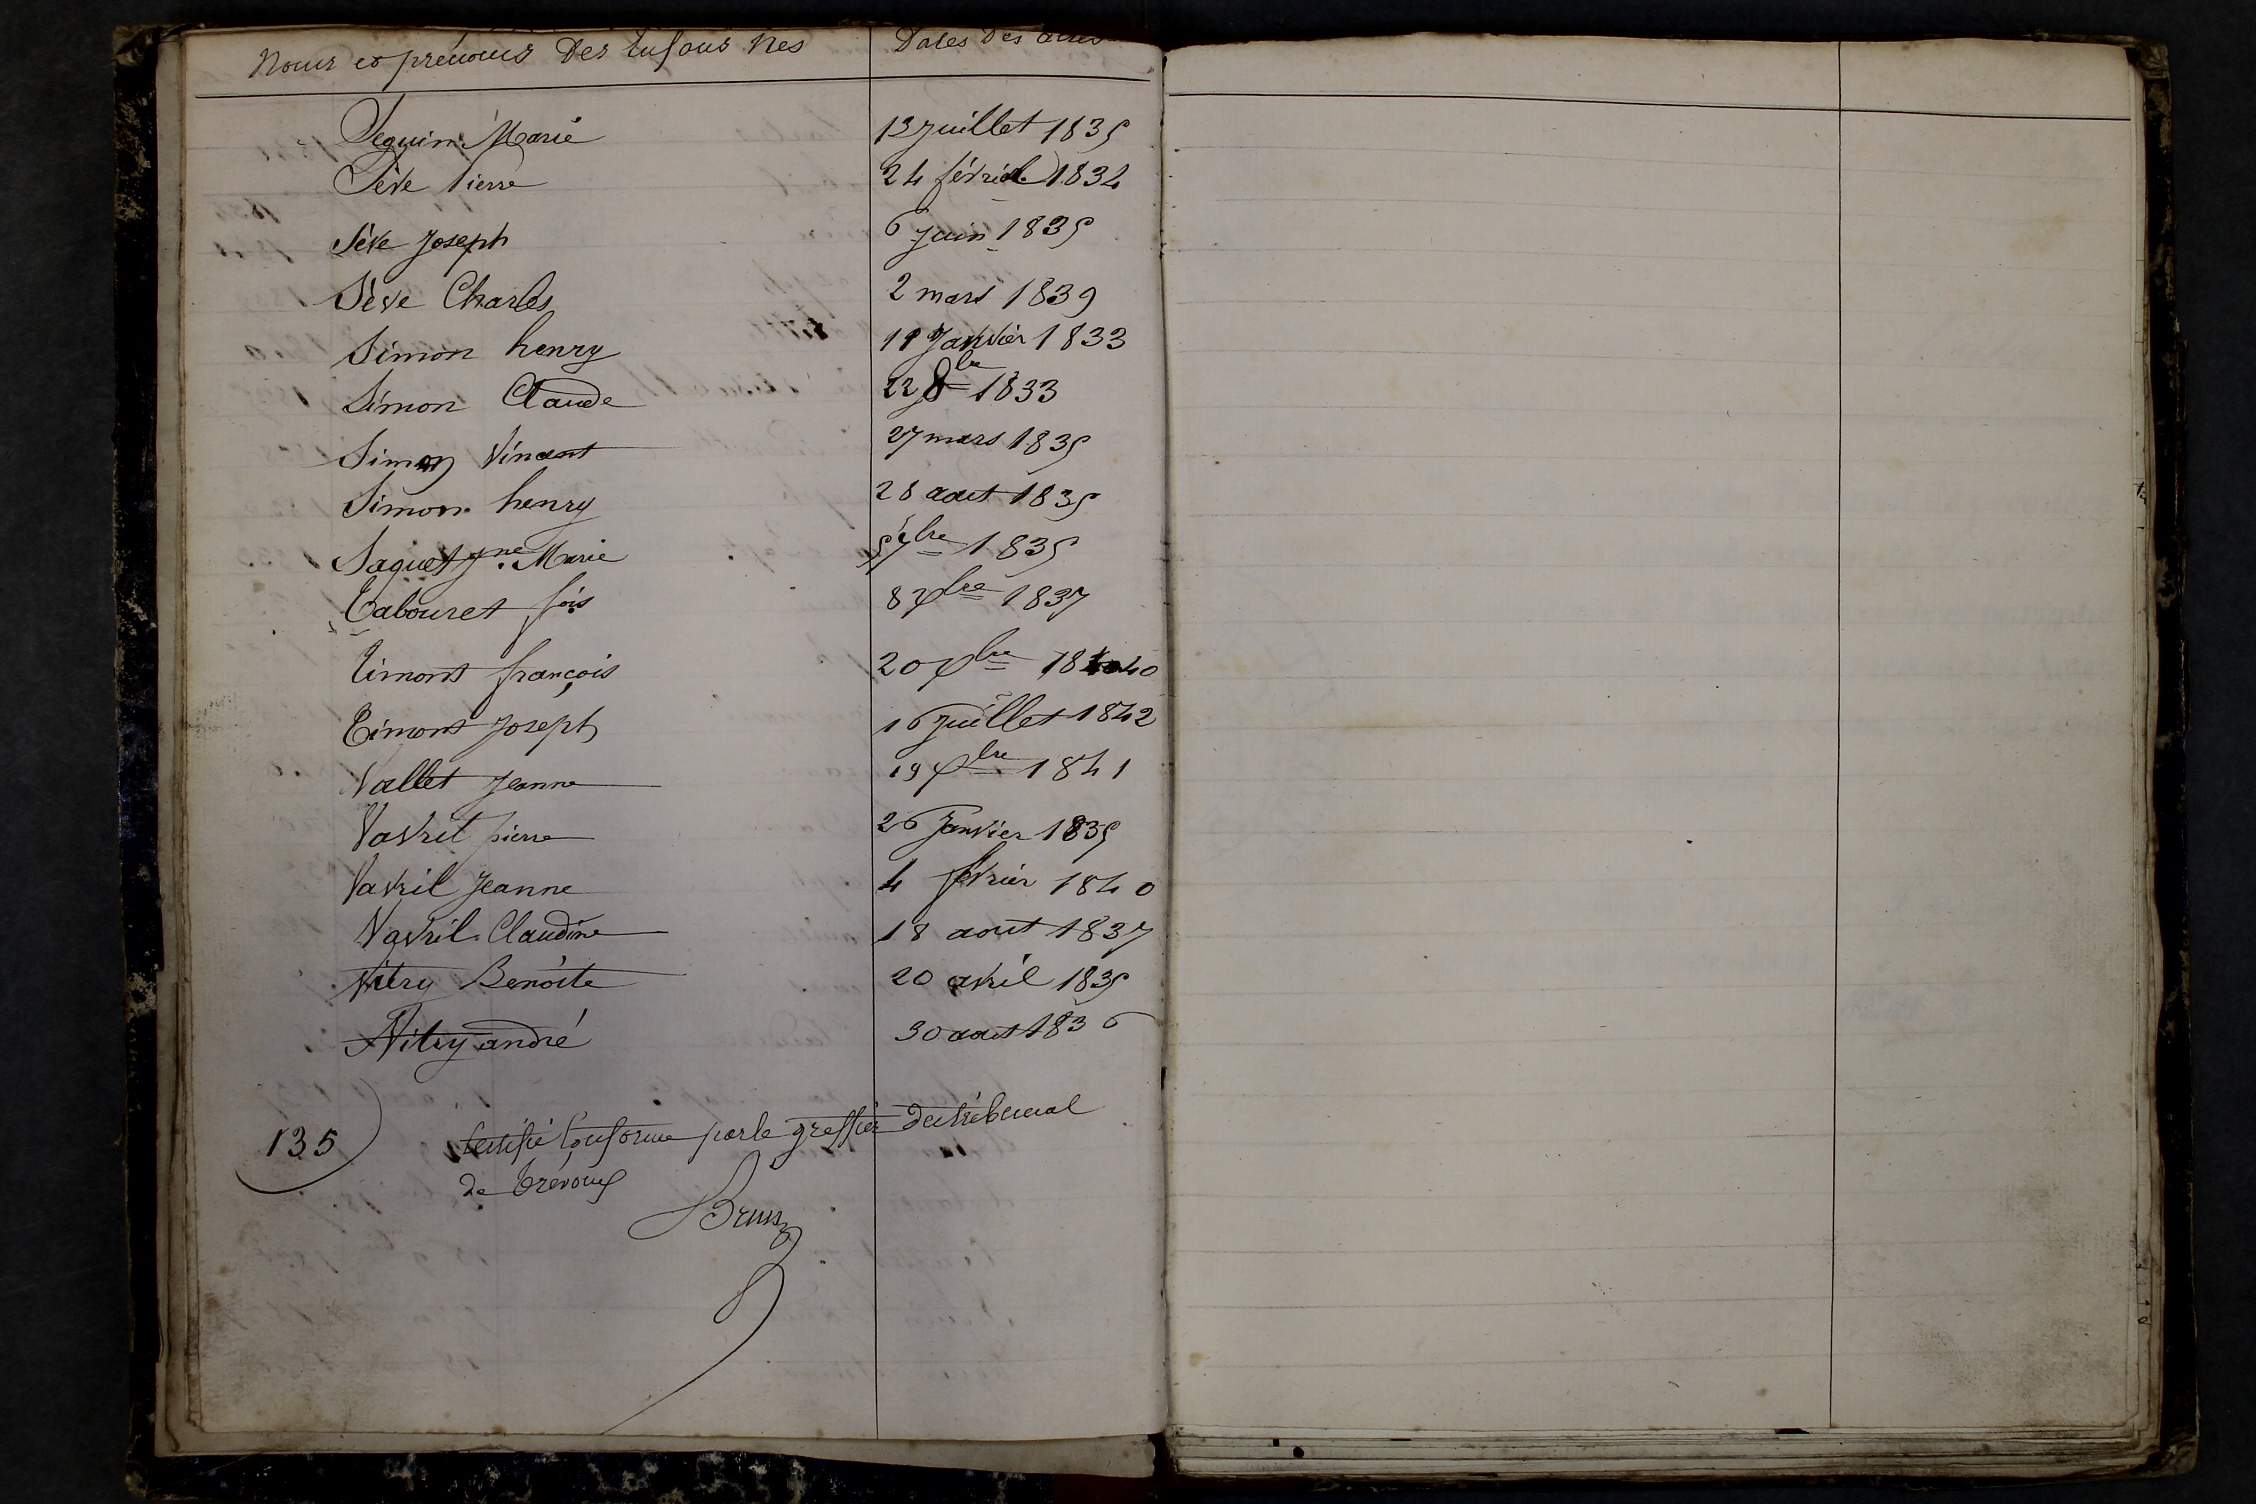 Noms et prénoms Des Enfans Nés Dates Des actes
Seguin Marie 13 juillet 1835
Sève Pierre 24 février 1834
Sève Joseph 6 juin 1835
Sève Charles 2 mars 1839
Simon henry 11 Janvier 1833
Simon Claude 22 8bre 1833
Simon Vincent 27 mars 1835
Simon henry 28 aout 1835
Saquet Jne Marie 7bre 1835
Tabouret fois 8 Xbre 1837
Timont françois 20 Xbre 1840
Timont Joseph 16 Juillet 1842
Vallet Jeanne 19 Xbre 1841
Vavril pierre 26 Janvier 1835
Vavril Jeanne 4 février 1840
Vavril Claudine 18 aout 1837
Vitry Benoîte 20 avril 1835
Vitry andré 30 aout 1836
135
Certifié Conforme par le greffier du tribunal
de Trévoux
Brun